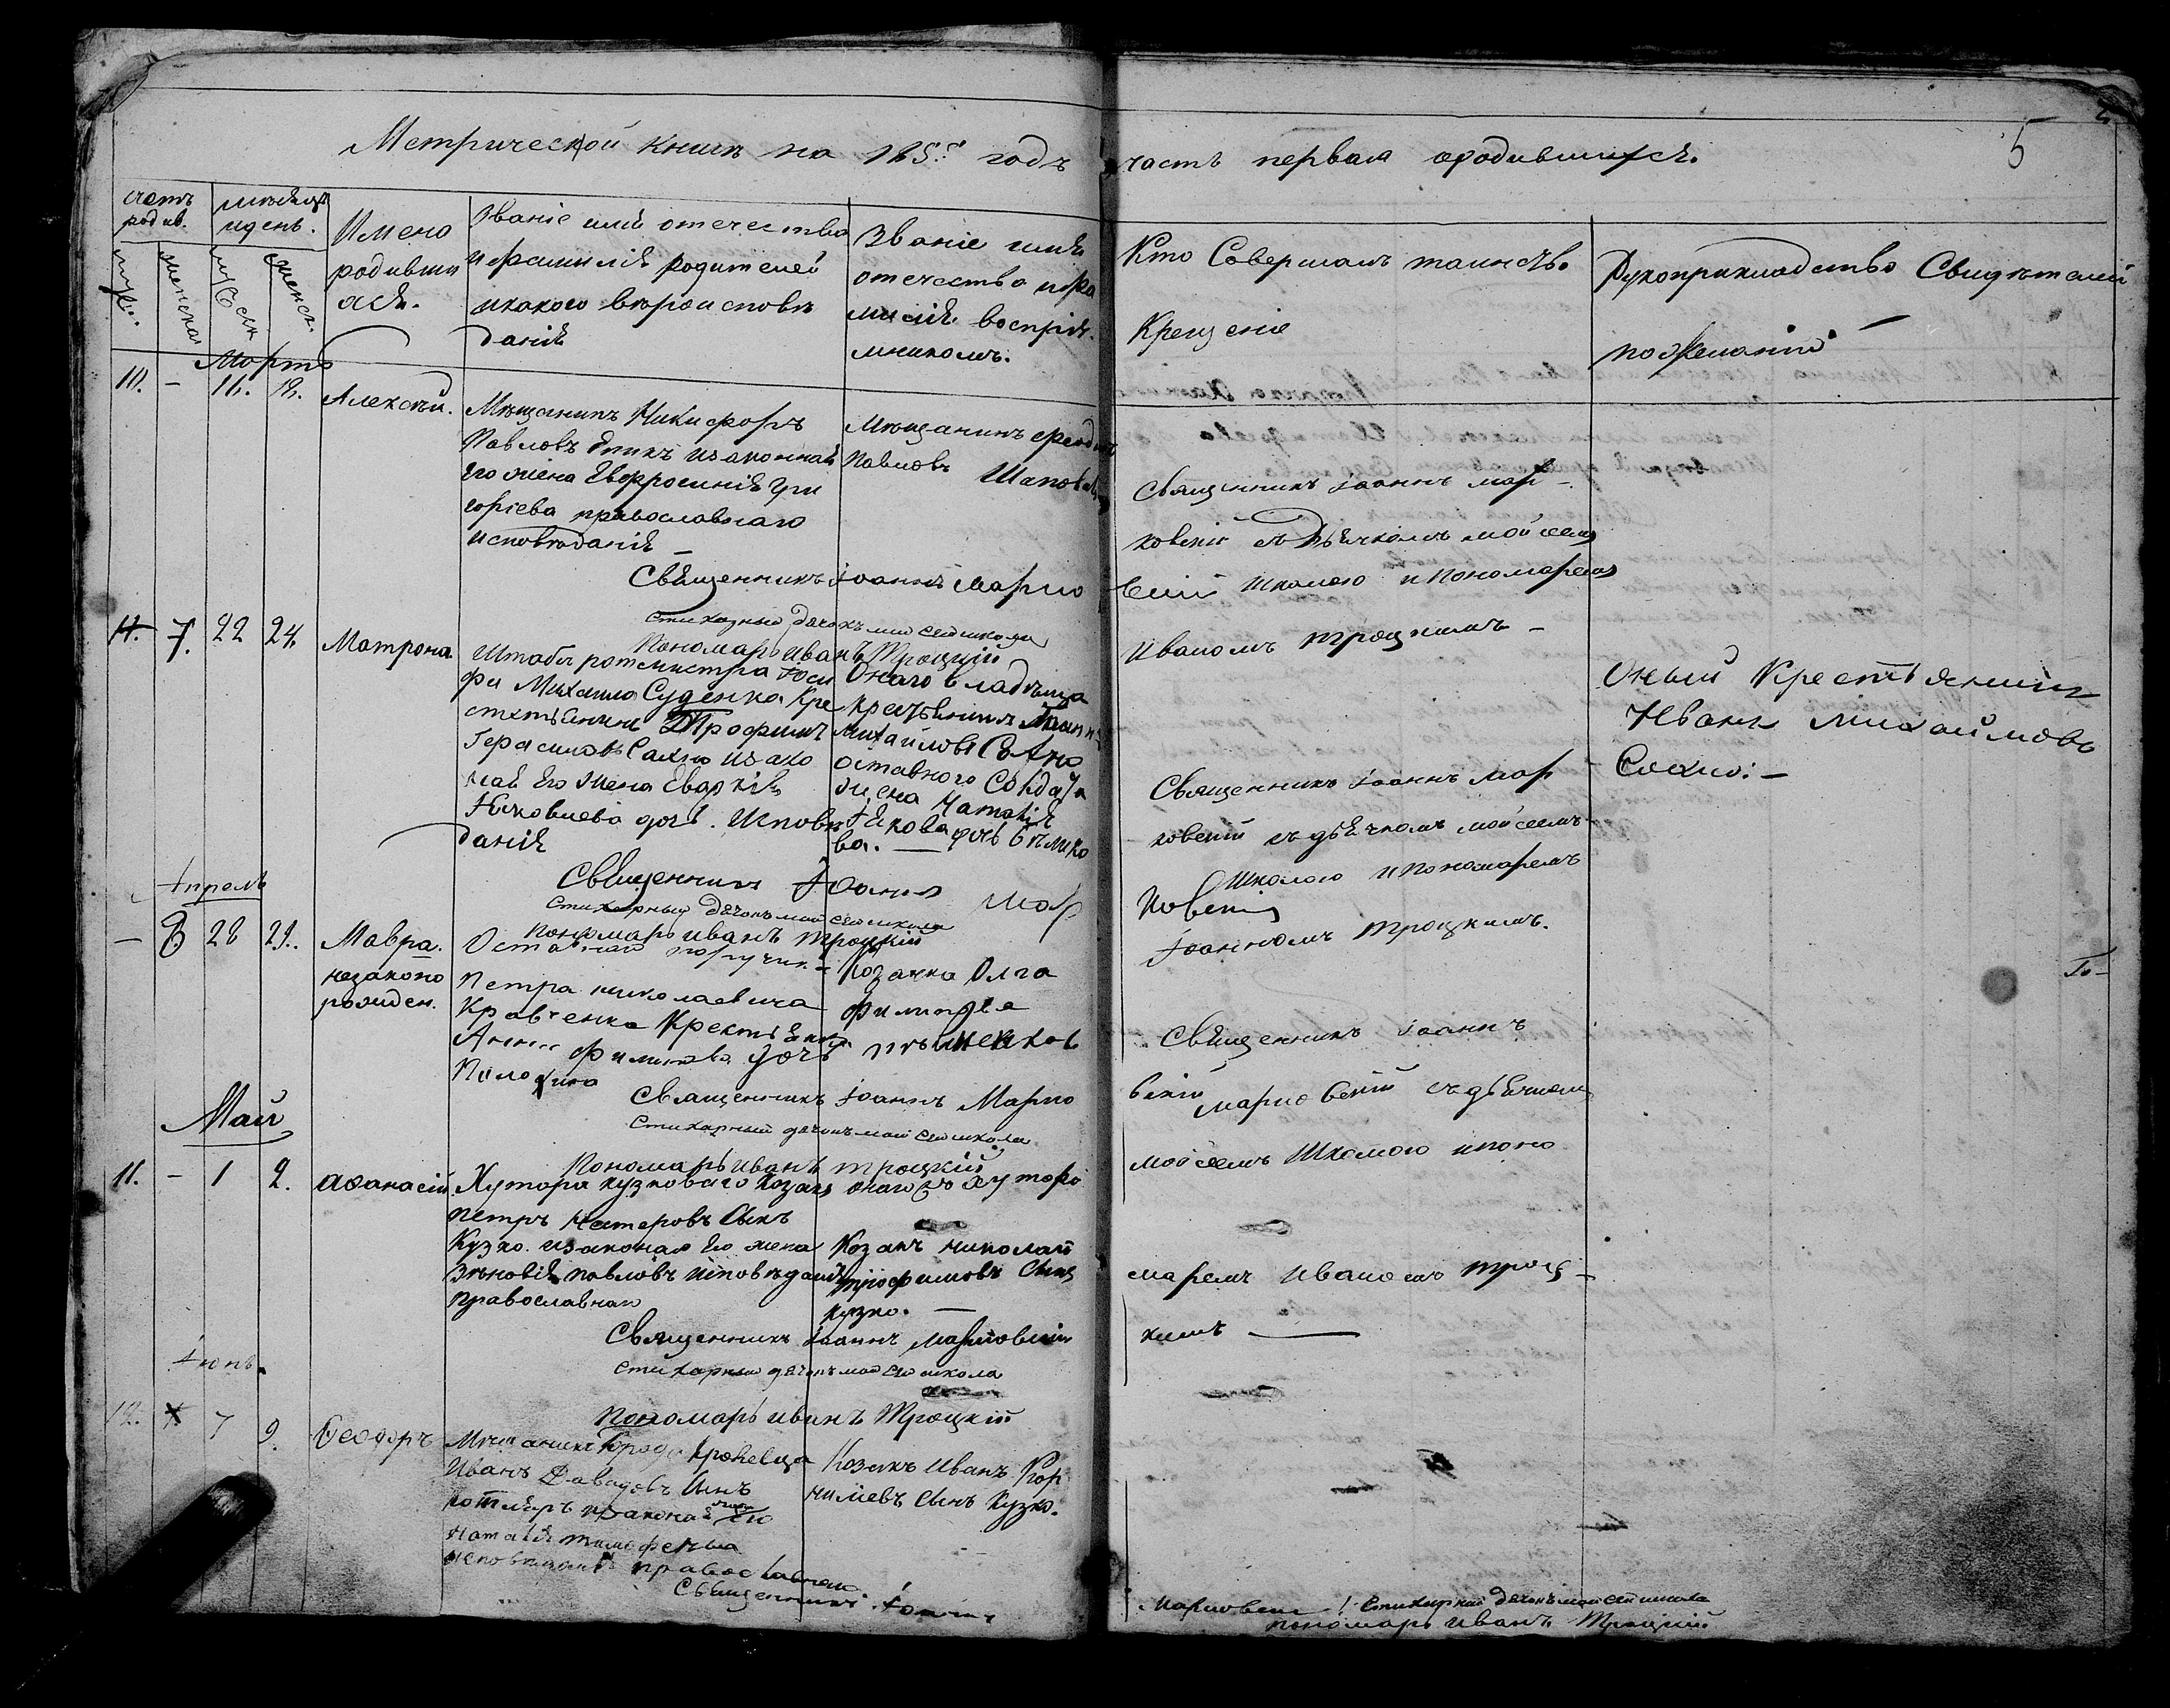 Метрической книги на 185 годъ
часть первая ородившихся.
5
счетъ родив.
мѣсяцъ идень.
Имена родивши хся.
званіе имя отечество
ифамилія родителей
икакого вѣроисповѣ
данія
Званіе имя
отечество ифа
милія воспріе.
мниковъ.
Кто Совершалъ таинство
Крещеніе
Рукоприкладство Свидѣтелей
пожеланію
Мартъ
10. - 16. 18. Алексѣй.
Мѣщанинъ Никифоръ
Павловъ изаконная
его жена Евфросинія Гри
горіева православнаго
исповѣданія
Мѣщанинъ
Павловъ
Священникъ Іоаннъ Мар
ковскій съ Дьячкомъ мойсеемъ
Школою и Пономаремъ
Иваномъ троцкимъ -
Священникъ Іоаннъ Марко
вскій
стихарный дячокъ мойсей школа
Пономарь иванъ Троцкій
11. 7. 22 24 Матрона
Штабъ ротмистра Іоси
фа Михаила Суденка Кре
стьянинъ Трофимъ
Герасимовъ Сахно изако
ная его жена Евдокія
Яковлева дочь. Исповѣ
данія
Онаго владѣльца
крестьянинъ Іоаннъ
михайловъ Сахно
оставного Солдата
жена Наталія
Якова дочь
ва. —
Священникъ Іоаннъ Мар
ковскій съ дьячкомъ мойсеемъ
Школою ипономаремъ
Іоанномъ троцкимъ.
Оный Крестьянинъ
Иванъ михайловъ
Сахно: —
Священникъ Іоаннъ Мар
ковскій
стихарный дячокъ мойсей школа
пономарь иванъ троцкій
Апрель
- 8 28 29. Мавра.
незаконо
рожден.
Оставнаго поручика
Петра николаевича
Кравченка Крестьянка
Анна Филипова дочь
Козачка Олга
Филипова
Священникъ Іоаннъ
марковскій съ дьячкомъ
мойсеемъ Школою ипоно
маремъ Иваномъ троц-
кимъ —
Священникъ Іоаннъ Марко
вскій
Стихарный дячокъ мойсей школа
Пономарь иванъ троцкій
Май
11. - 1 2. Афанасій
Хутора кузковаго Козакъ
петръ нестеровъ Сынъ
Кузко. изаконая его жена
Зѣновія павловъ исповѣданія
православнаго
онаго жъ хутора
Козакъ николай
трофимовъ Сынъ
кузко. —
Священникъ Іоаннъ Марковскій
стихарный дячокъ мойсей школа
Пономарь иванъ Троцкій
Іюнь.
12. 7 9. Феодоръ
Мѣщанинъ Города Кролевца
Иванъ Давидовъ Сынъ
котляръ изаконая его жена
Наталія тимофеева
исповѣданія православнаго
Козакъ Иванъ Кор
нилиевъ Сынъ Кузко.
Священникъ Іоаннъ
Марковскій Стихарный дячокъ мойсей школа
пономарь иванъ Троцкій